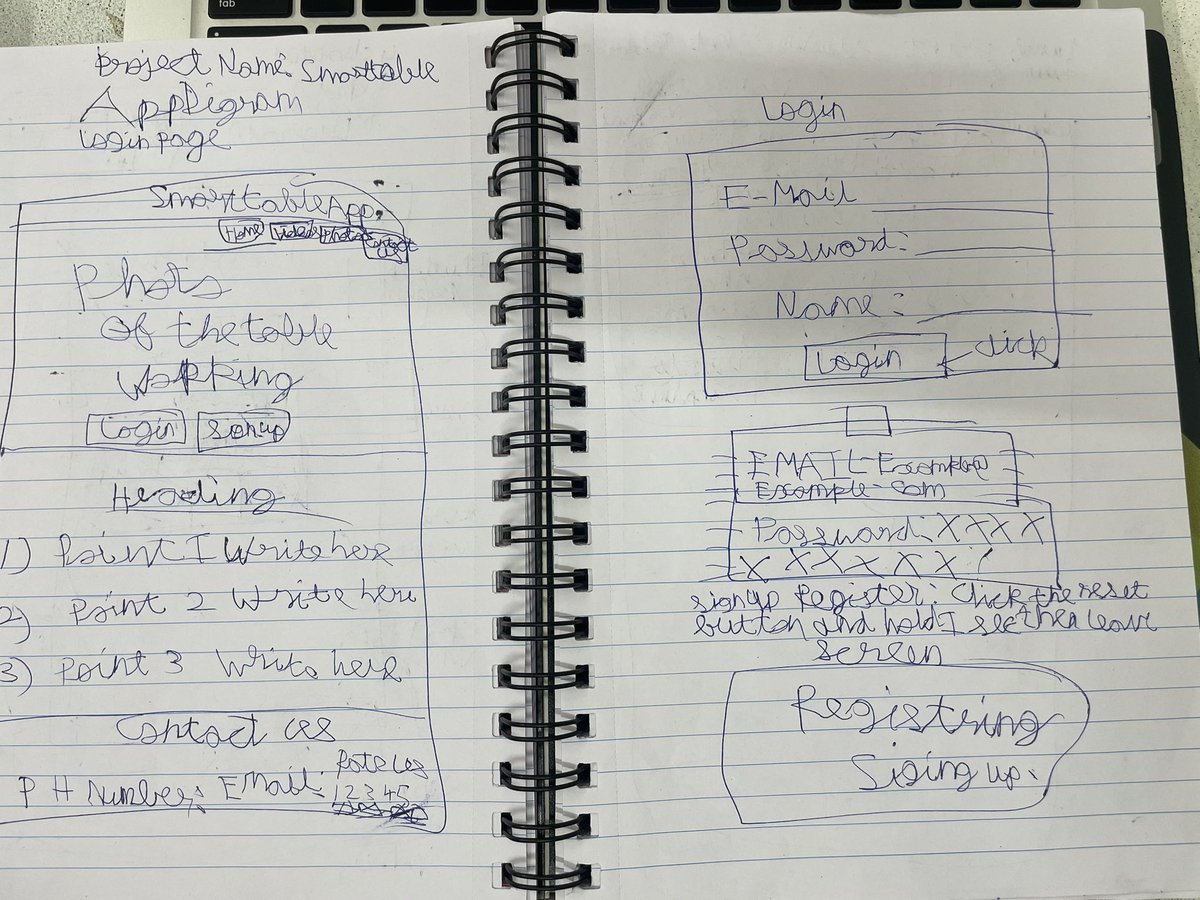 tab
Project Name: Smarttable
AppDigram
Login page
SmarttableApp.
Home Videos Photos Contact us
Phots
Of the table
working
Login Signup
Heading
1) Point 1 Write here
2) Point 2 Write here
3) Point 3 Write here
Contact us
PH Number: EMail: Rate us
1 2 3 4 5
Login
E-Mail
Password:
Name:
Login click
EMAIL-Example@
Example.com
Password: X X X X
X X X X X X X
Signup Register: Click the reset
button and hold I see then leave
screen
Registring
Siging up.